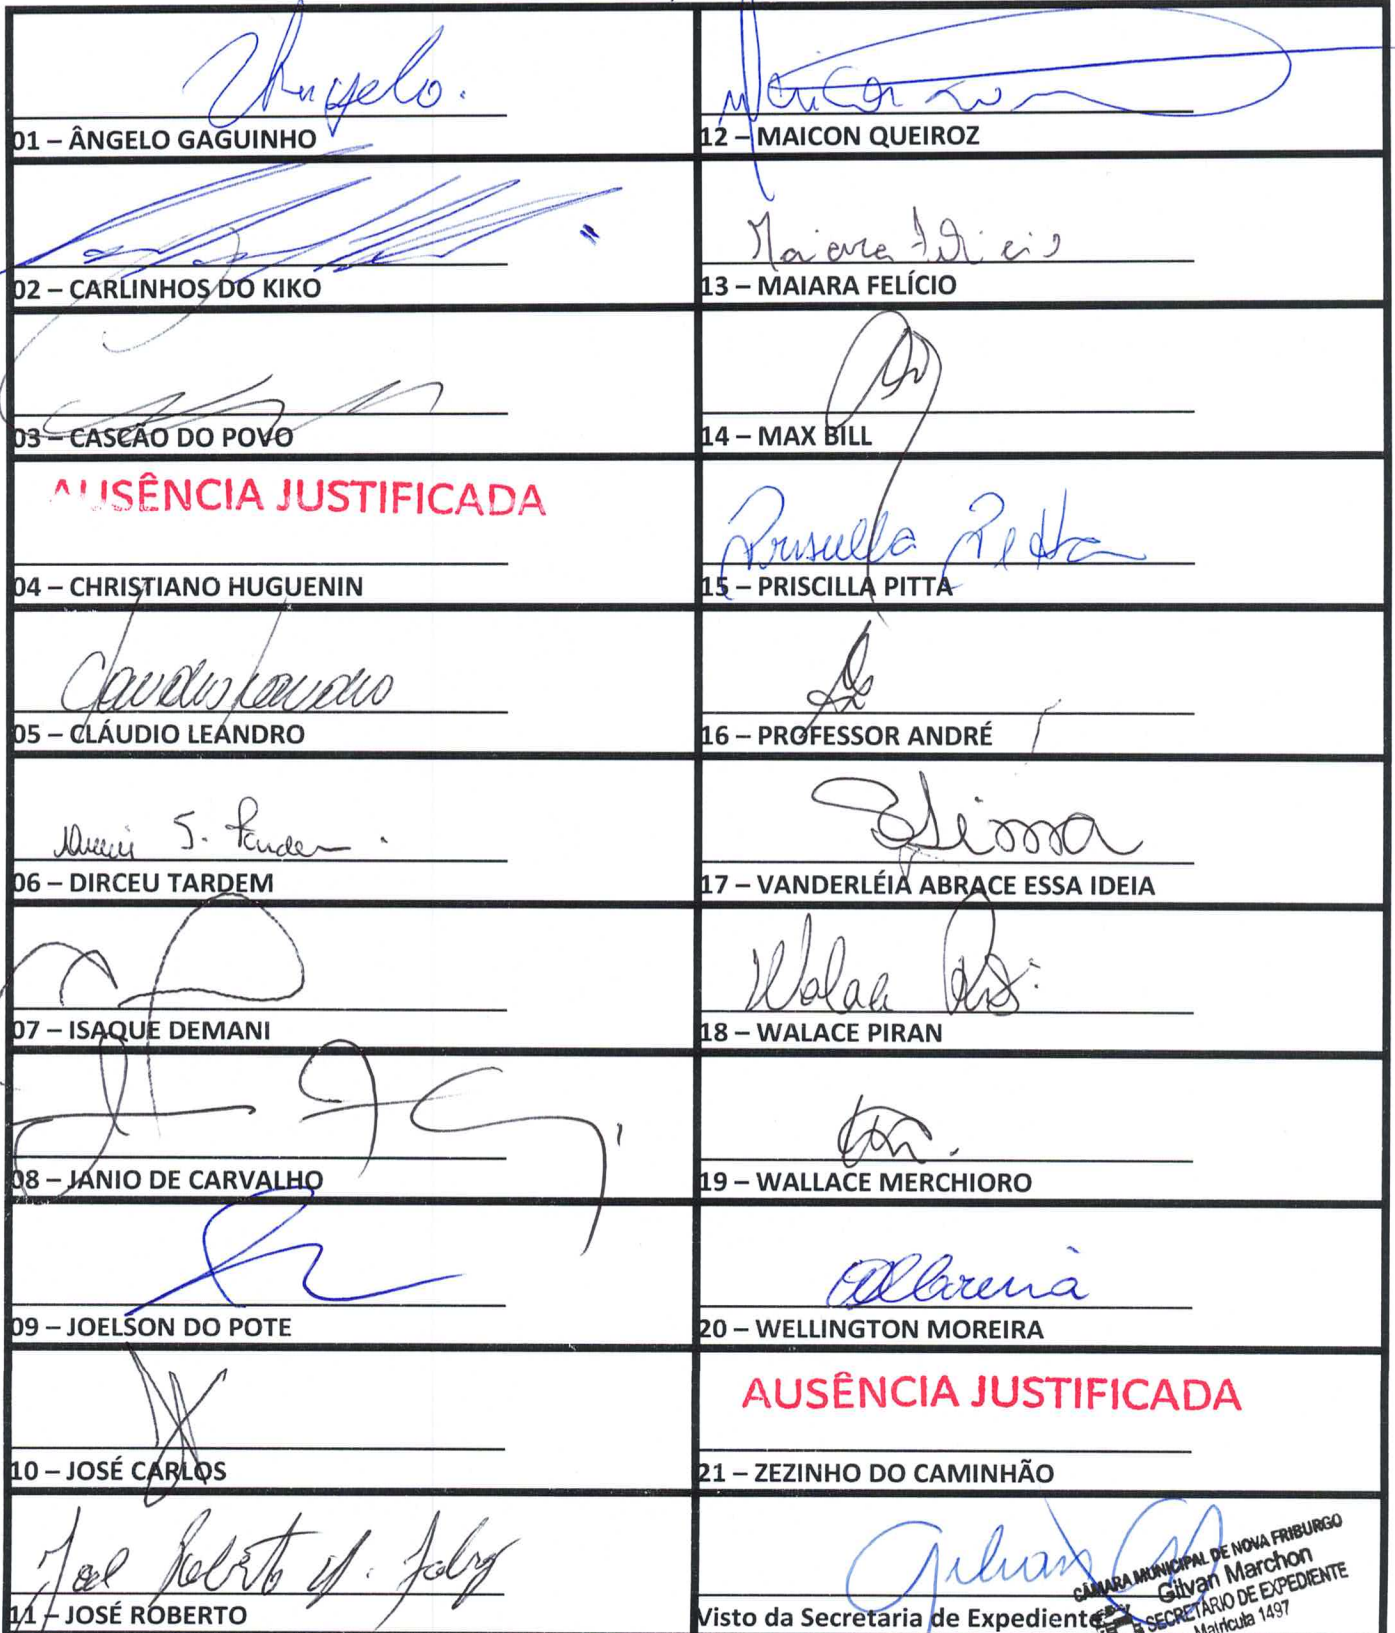 Angelo.
01 – ÂNGELO GAGUINHO
02 – CARLINHOS DO KIKO
03 – CASCÃO DO POVO
AUSÊNCIA JUSTIFICADA
04 – CHRISTIANO HUGUENIN
Claudio Leandro
05 – CLÁUDIO LEANDRO
06 – DIRCEU TARDEM
07 – ISAQUE DEMANI
08 – JANIO DE CARVALHO
09 – JOELSON DO POTE
10 – JOSÉ CARLOS
José Roberto
11 – JOSÉ ROBERTO
12 – MAICON QUEIROZ
Maiara Felicio
13 – MAIARA FELÍCIO
14 – MAX BILL
Priscilla Pitta
15 – PRISCILLA PITTA
16 – PROFESSOR ANDRÉ
17 – VANDERLÉIA ABRACE ESSA IDEIA
Walace
18 – WALACE PIRAN
19 – WALLACE MERCHIORO
20 – WELLINGTON MOREIRA
AUSÊNCIA JUSTIFICADA
21 – ZEZINHO DO CAMINHÃO
Gilvan
Visto da Secretaria de Expediente
CÂMARA MUNICIPAL DE NOVA FRIBURGO
Gilvan Marchon
SECRETÁRIO DE EXPEDIENTE
Matrícula 1497